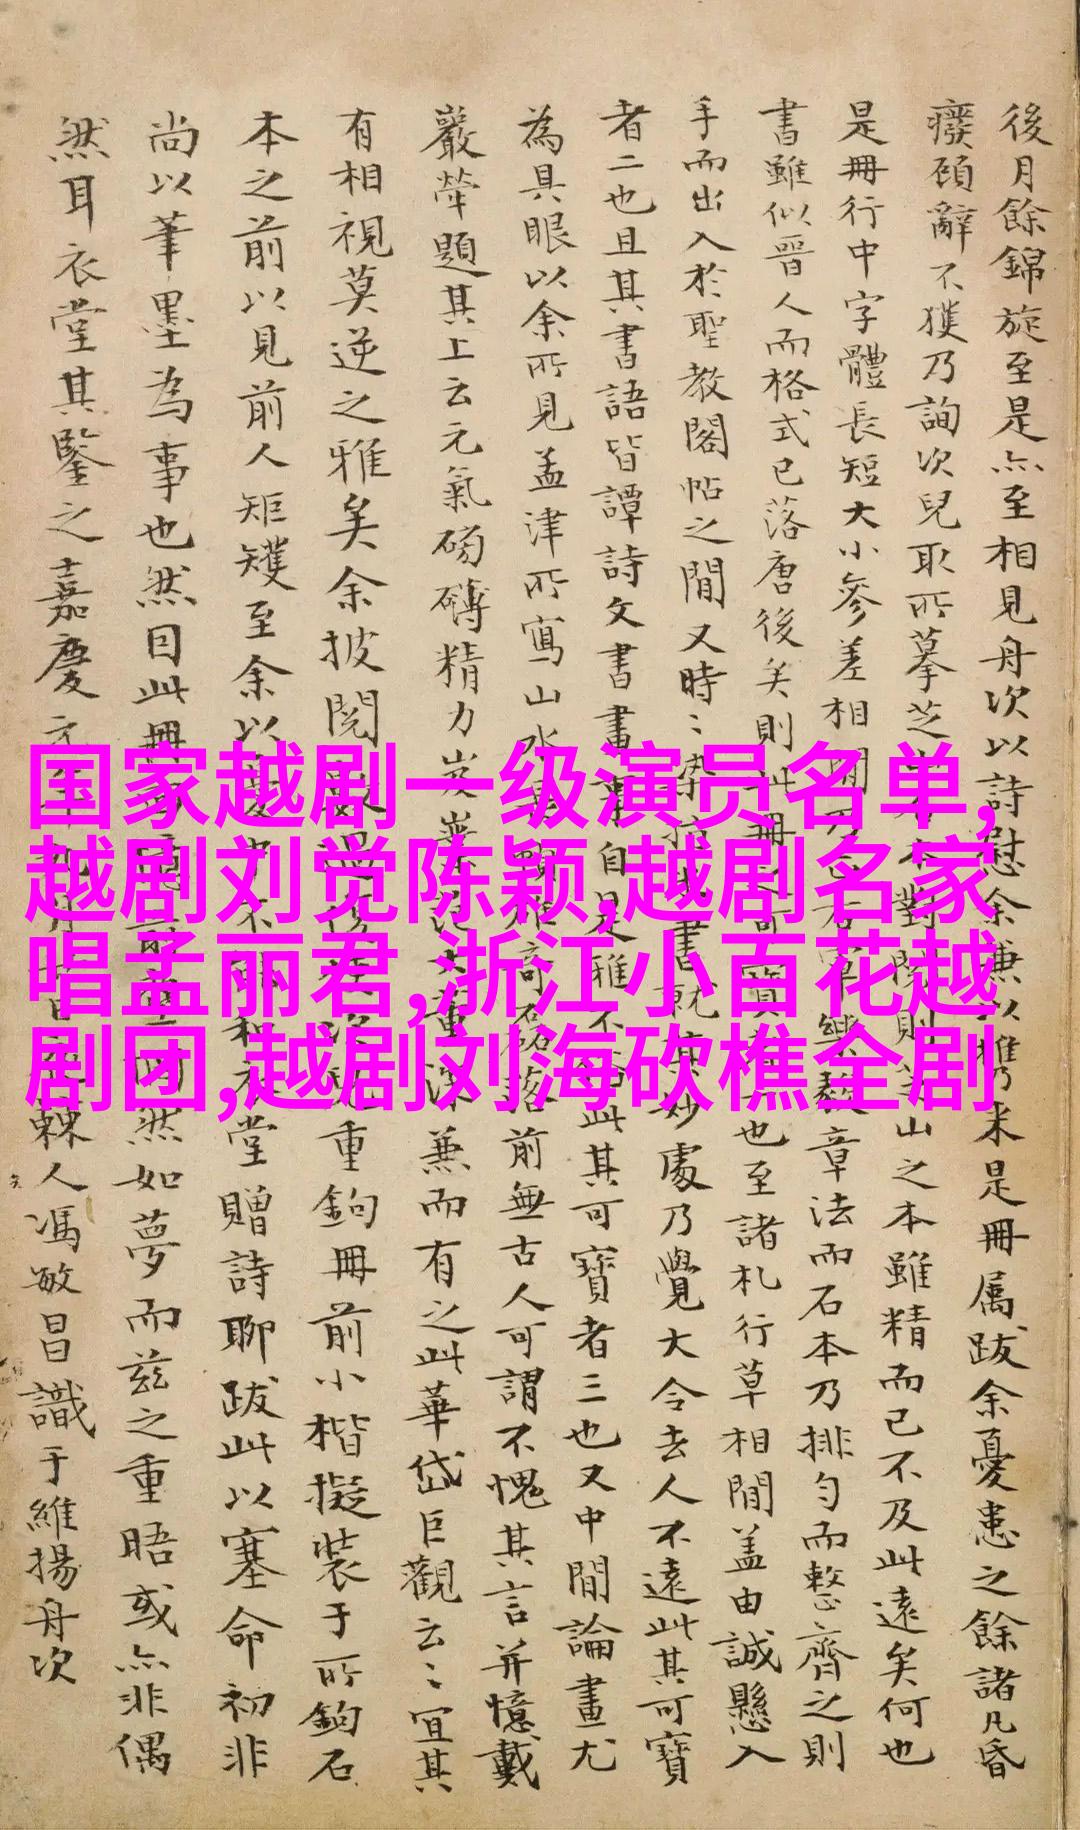 後月餘錦旋至是亦至相見舟次以詩慰余兼以携來是冊属跋余憂患之餘諸凡昏
癈頋辭不獲乃詢次兒取所摹芝 對 則 山之本雖精而已不及此遠矣何也
是冊行中字體長短大小參差相間乃 章法而石本乃排勻而整齊之則
書雖似晉人而格式已落唐後矣則此冊 可寶 一也至諸札行草相間盖由誠懸入
手而出入於聖教閣帖之間又時〻染 書就其妙處乃覺大令去人不遠此其可寶
者二也且其書語皆譚詩文書畫事自是雅不 此其可寶者三也又中間論畫尤
為具眼以余所見孟津所寫山水 顆 奇磊落前無古人可謂不愧其言并憶戴
巖犖題其上云元氣磅礴精力 大 深兼而有之此華岱巨觀云〻宜其
有相視莫逆之雅矣余披閱 重鉤冊前小楷擬裝于所鉤石
本之前以見前人矩矱至余以 不 和 衣堂贈詩聊跋此以塞命初非
尚以筆墨為事也然因此冊 然如夢而兹之重晤或亦非偶
然耳衣堂其鑒之嘉慶元年 月 日 棘人馮敏昌識于維揚舟次
国家越剧一级演员名单,
越剧刘觉陈颖,越剧名家
唱孟丽君,浙江小百花越
剧团,越剧刘海砍樵全剧